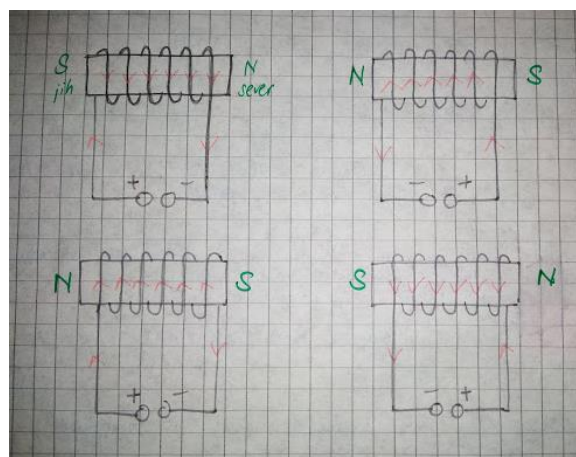 S N
jih sever
+ -
N S
- +
N S
+ -
S N
- +